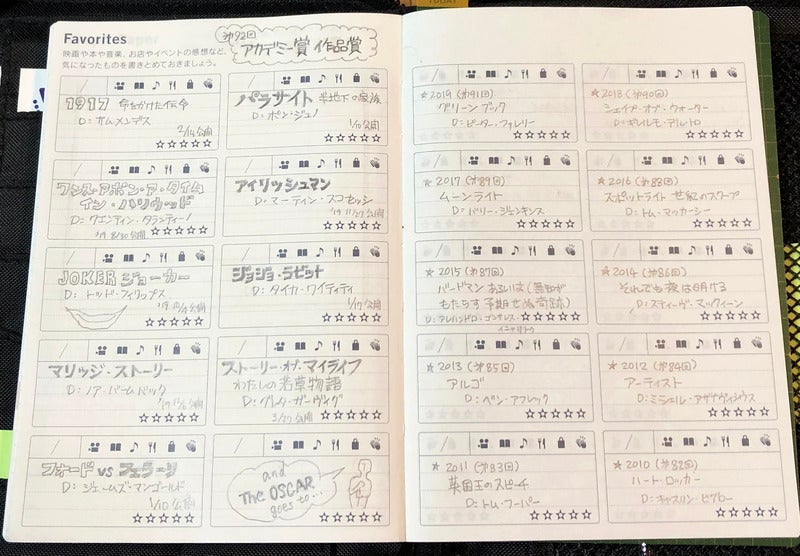 Favorites
映画や本や音楽、お店やイベントの感想など、
気になったものを書きとめておきましょう。
第92回
アカデミー賞 作品賞
1917 命をかけた伝令
D:サム・メンデス
2/14公開
パラサイト 半地下の家族
D:ポン・ジュノ
1/10公開
ワンス・アポン・ア・タイム
イン・ハリウッド
D:クエンティン・タランティーノ
'19 8/30公開
アイリッシュマン
D:マーティン・スコセッシ
'19 11/27公開
JOKER ジョーカー
D:トッド・フィリップス
公開
ジョジョ・ラビット
D:タイカ・ワイティティ
1/17公開
マリッジ・ストーリー
D:ノア・バームバック
公開
ストーリー・オブ・マイライフ
わたしの若草物語
D:グレタ・ガーウィグ
3/27公開
フォード vs フェラーリ
D:ジェームズ・マンゴールド
1/10公開
and
The OSCAR
goes to...
★2019(第91回)
グリーンブック
D:ピーター・ファレリー
★2018(第90回)
シェイプ・オブ・ウォーター
D:ギレルモ・デルトロ
★2017(第89回)
ムーンライト
D:バリー・ジェンキンス
★2016(第88回)
スポットライト 世紀のスクープ
D:トム・マッカーシー
★2015(第87回)
バードマン あるいは(無知が
もたらす予期せぬ奇跡)
D:アレハンドロ・ゴンサレス・
イニャリトゥ
★2014(第86回)
それでも夜は明ける
D:スティーヴ・マックィーン
★2013(第85回)
アルゴ
D:ベン・アフレック
★2012(第84回)
アーティスト
D:ミシェル・アザナヴィシウス
★2011(第83回)
英国王のスピーチ
D:トム・フーパー
★2010(第82回)
ハート・ロッカー
D:キャスリン・ビグロー